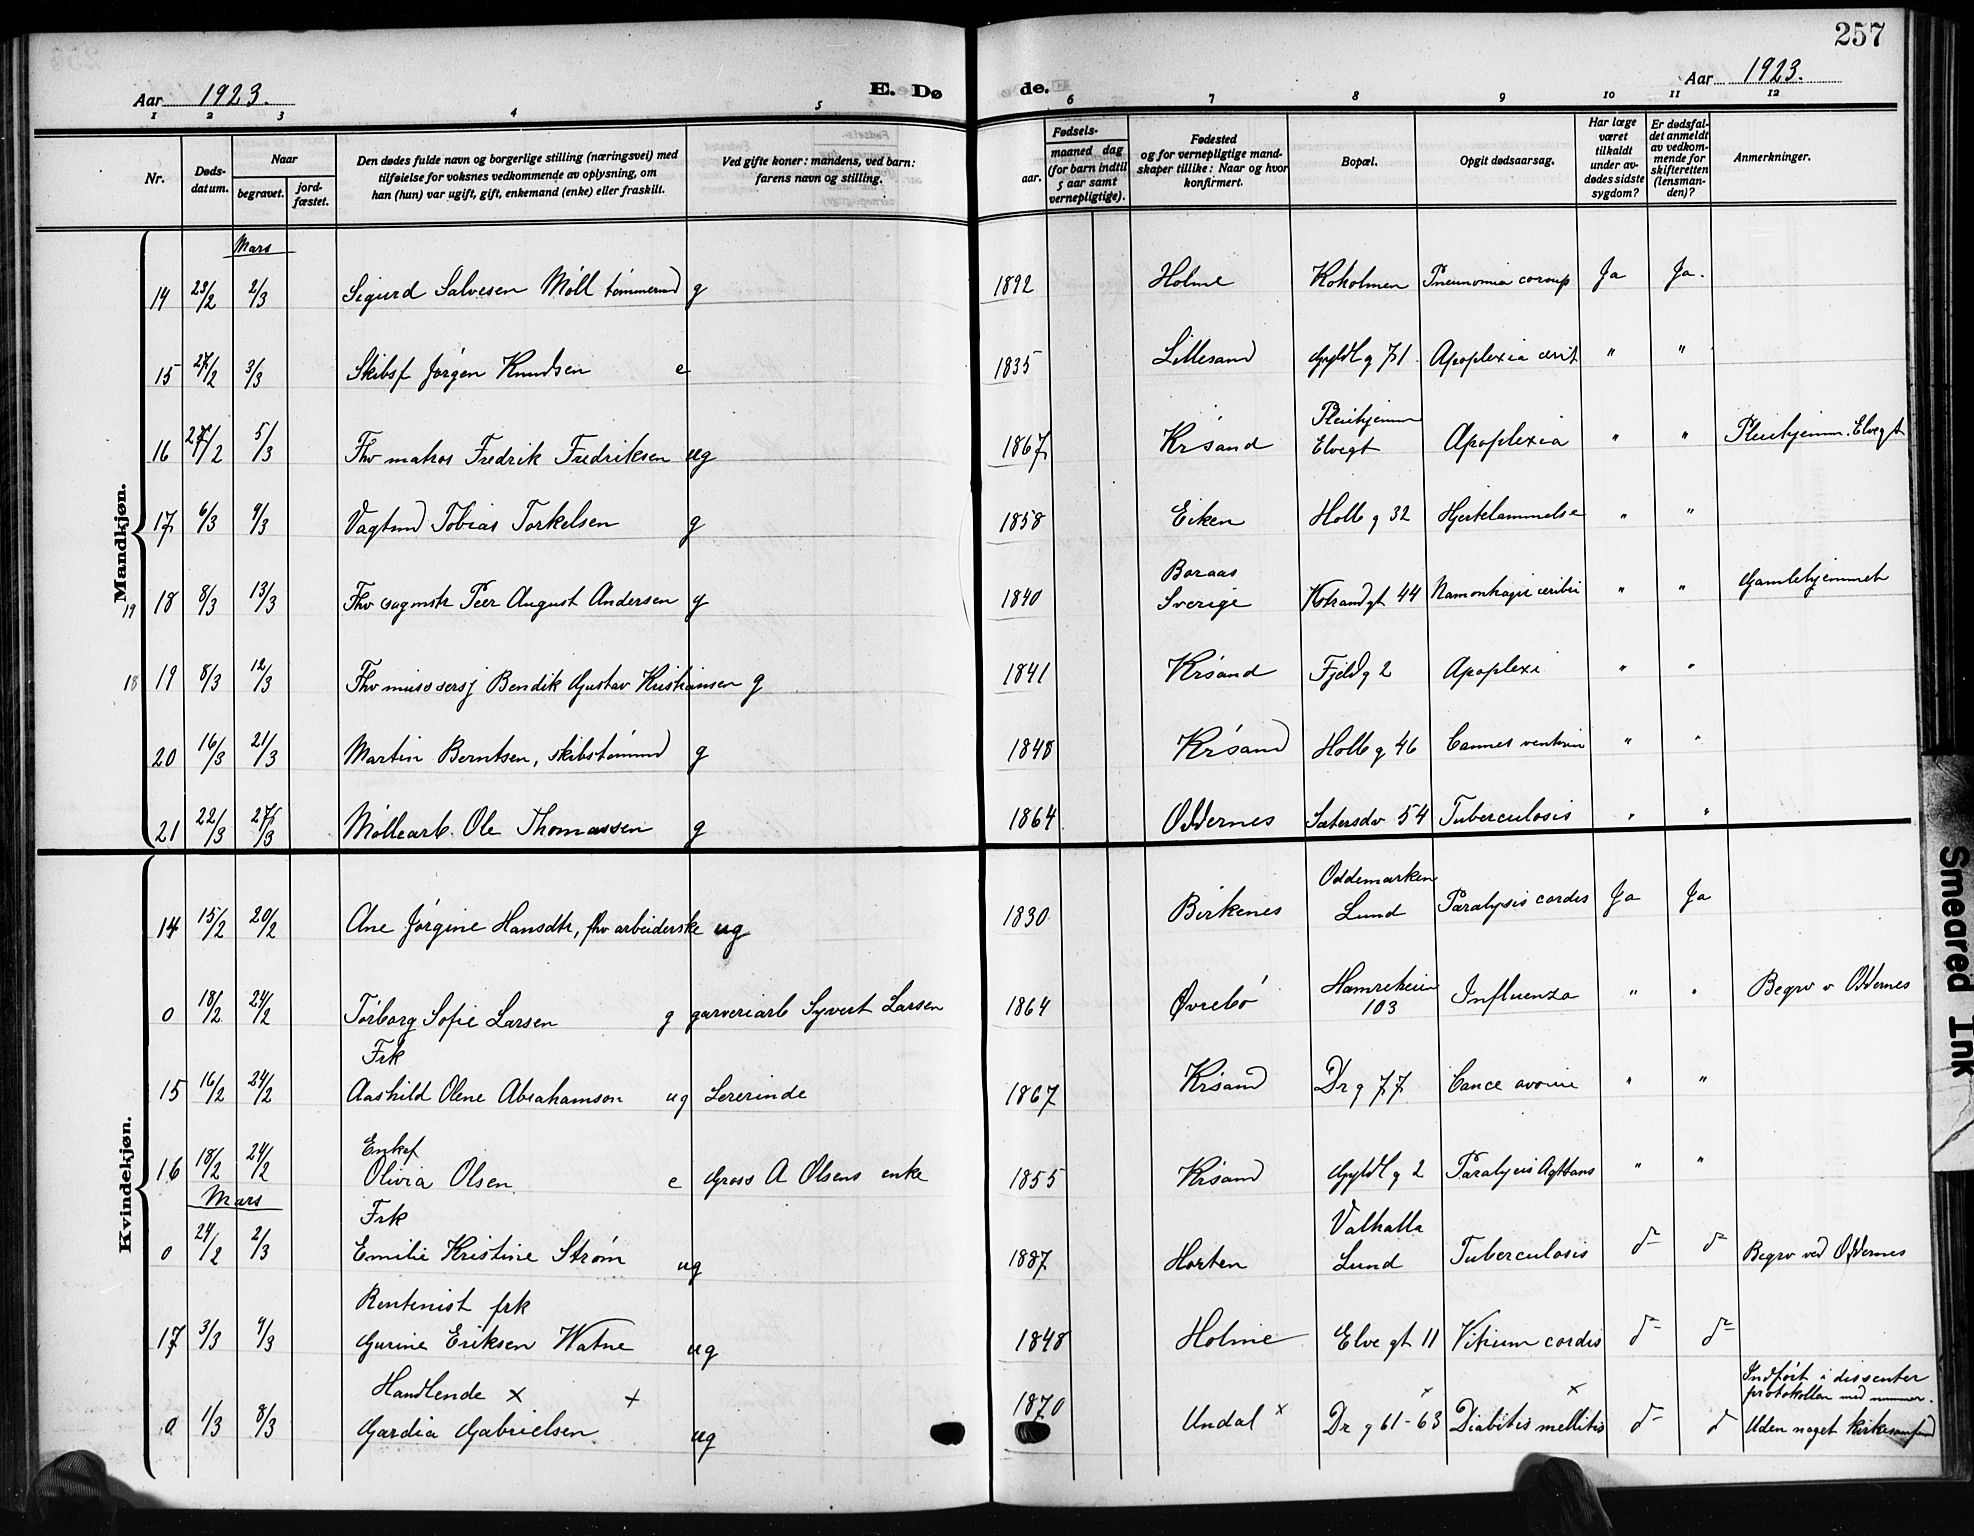 257
Aar 1923.
E. Døde.
Aar 1923.
1 2 3 4 5 6 7 8 9 10 11 12
Nr.
Døds-
datum.
Naar
begravet.
jord-
fæstet.
Den dødes fulde navn og borgerlige stilling (næringsvei) med
tilføielse for voksnes vedkommende av oplysning, om
han (hun) var ugift, gift, enkemand (enke) eller fraskilt.
Ved gifte koner: mandens, ved barn:
farens navn og stilling.
Fødsels-
aar.
maaned dag
(for barn indtil
5 aar samt
vernepligtige).
Fødested
og for vernepligtige mand-
skaper tillike: Naar og hvor
konfirmert.
Bopæl.
Opgit dødsaarsag.
Har læge
været
tilkaldt
under av-
dødes sidste
sygdom?
Er dødsfal-
det anmeldt
av vedkom-
mende for
skifteretten
(lensman-
den)?
Anmerkninger.
Mandkjøn.
Mars
14 23/2 2/3 Sigurd Salvesen Møll tømmermd g 1892 Holme Kokolmen Pneunomia coroup Ja Ja.
15 27/2 3/3 Skibsf Jørgen Knudsen e 1835 Lillesand Gyldl g 71 Apoplexia " "
Pleiehjemm
16 27/2 5/3 Fhv matros Fredrik Fredriksen ug 1867 Krsand Elvegt Apoplexia " " Pleiehjemm. Elvegt
17 6/3 9/3 Vagtmd Tobias Torkelsen g 1858 Eiken Holb g 32 Hjertelammelse " "
Boraas
19 18 8/3 13/3 Fhv sagmstr Peer August Andersen g 1840 Sverige Kstrandgt 44 " " Gamlehjemmet
18 19 8/3 12/3 Fhv Bendik Gustav Kristiansen g 1841 Krsand Fjeld g 2 Apoplexi " "
20 16/3 21/3 Martin Berntsen, skibstømmd g 1848 Krsand Holb g 46 " "
21 22/3 27/3 Møllearb. Ole Thomassen g 1864 Oddernes Sætersdv 54 Tuberculosis " "
Kvindekjøn.
Oddemarken
14 15/2 20/2 Ane Jørgine Hansdtr, fhv arbeiderske ug 1830 Birkenes Lund Paralysis cordis Ja Ja
Hamreheien
0 18/2 24/2 Torborg Sofie Larsen g garveriarb Syvert Larsen 1864 Øvrebø 103 Influenza " " Begrv v Oddernes
Frk
15 16/2 24/2 Aashild Olene Abrahamson ug Lererinde 1867 Krsand Dr g 77. " "
Enkef
16 18/2 24/2 Olivia Olsen e Gross A Olsens enke 1855 Krsand Gyldl g 2 Paralysis Agitans " "
Mars
Frk Valhalla
0 24/2 2/3 Emilie Kristine Strøm ug 1887 Horten Lund Tuberculosis Begrv ved Oddernes
Rentenist frk
17 3/3 9/3 Gurine Eriksen Watne ug 1848 Holme Elve gt 11 Vitium cordis
Handlende x + x x Indført i dissenter
protokollen med nummer.
0 1/3 8/3 Gardia Gabrielsen ug 1870 Undal x Dr g 61-63 Diabitis mellitis Uden noget kirkesamfund
Smeared Ink